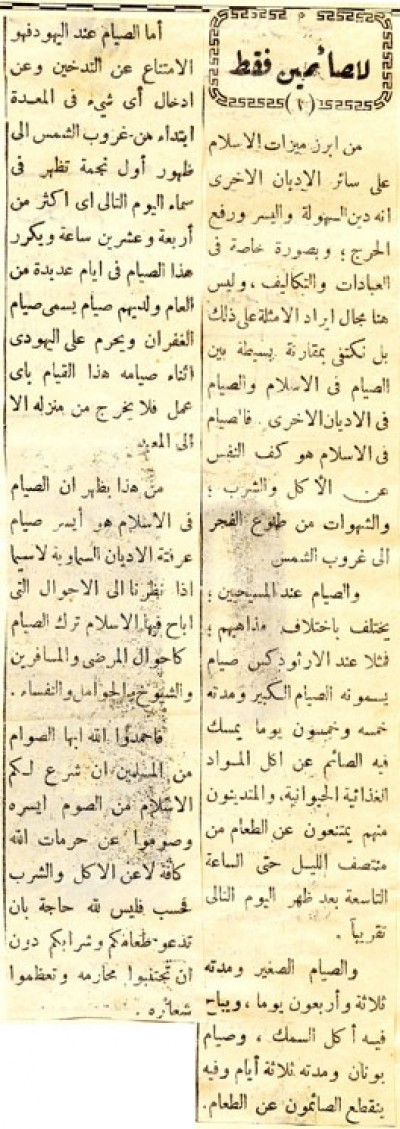 لاصائمين فقط
(٢)
من ابرز ميزات الاسلام
على سائر الاديان الاخرى
انه دين السهولة واليسر ورفع
الحرج ؛ وبصورة خاصة فى
العبادات والتكاليف ، وليس
هنا مجال ايراد الامثلة على ذلك
بل نكتفى بمقارنة بسيطة بين
الصيام فى الاسلام والصيام
فى الاديان الاخرى . فالصيام
فى الاسلام هو كف النفس
عن الأكل والشرب ؛
والشهوات من طلوع الفجر
الى غروب الشمس
والصيام عند المسيحيين ؛
يختلف باختلاف مذاهبهم ؛
فمثلا عند الارثودكس صيام
يسمونه الصيام الكبير ومدته
خمسه وخمسون يوما يمسك
فيه الصائم عن اكل المواد
الغذائية الحيوانية، والمتدينون
منهم يمتنعون عن الطعام من
منتصف الليل حتى الساعة
التاسعة بعد ظهر اليوم التالى
تقريباً .
والصيام الصغير ومدته
ثلاثة وأربعون يوما ، ويباح
فيه أكل السمك ، وصيام
يونان ومدته ثلاثة أيام وفيه
ينقطع الصائمون عن الطعام.
أما الصيام عند اليهود فهو
الامتناع عن التدخين وعن
ادخال أى شىء فى المعدة
ابتداء من غروب الشمس الى
ظهور أول نجمة تظهر فى
سماء اليوم التالى اى اكثر من
أربعة وعشرين ساعة ويكرر
هذا الصيام فى ايام عديدة من
العام ولديهم صيام يسمى صيام
الغفران ويحرم على اليهودى
اثناء صيامه هذا القيام باى
عمل فلا يخرج من منزله الا
الى المعبد
من هذا يظهر ان الصيام
فى الاسلام هو أيسر صيام
عرفته الاديان السماوية لاسيما
اذا نظرنا الى الاحوال التى
اباح فيها الاسلام ترك الصيام
كاحوال المرضى والمسافرين
والشيوخ والحوامل والنفساء .
فاحمدوا الله ايها الصوام
من المسلمين ان شرع لكم
الاسلام من الصوم ايسره
وصوموا عن حرمات الله
كافة لاعن الاكل والشرب
فحسب فليس لله حاجة بان
تدعو طعامكم وشرابكم دون
ان تجتنبوا محارمه وتعظموا
شعائره .